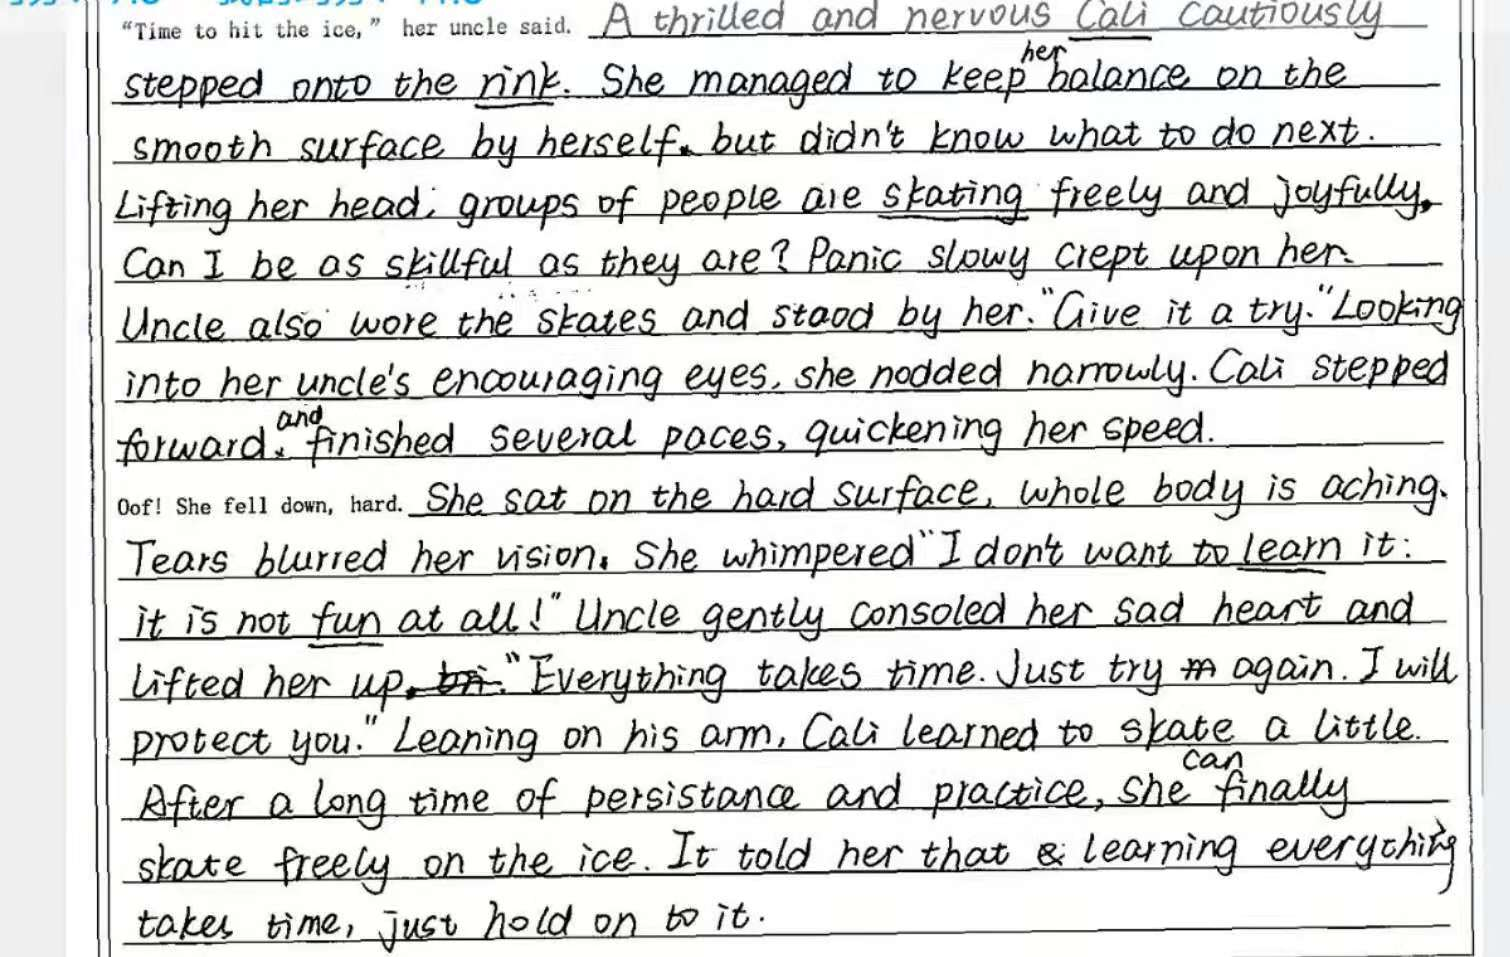 "Time to hit the ice," her uncle said. A thrilled and nervous Cali cautiously
stepped onto the rink. She managed to keep her balance on the
smooth surface by herself. but didn't know what to do next.
Lifting her head, groups of people are skating freely and joyfully.
Can I be as skillful as they are? Panic slowy crept upon her.
Uncle also wore the skates and stood by her. "Give it a try." Looking
into her uncle's encouraging eyes, she nodded narrowly. Cali stepped
forward. and finished several paces, quickening her speed.
Oof! She fell down, hard. She sat on the hard surface, whole body is aching.
Tears blurred her vision. She whimpered "I don't want to learn it:
it is not fun at all!" Uncle gently consoled her sad heart and
lifted her up. "Everything takes time. Just try again. I will
protect you." Leaning on his arm, Cali learned to skate a little.
After a long time of persistance and practice, she can finally
skate freely on the ice. It told her that learning everything
takes time, just hold on to it.